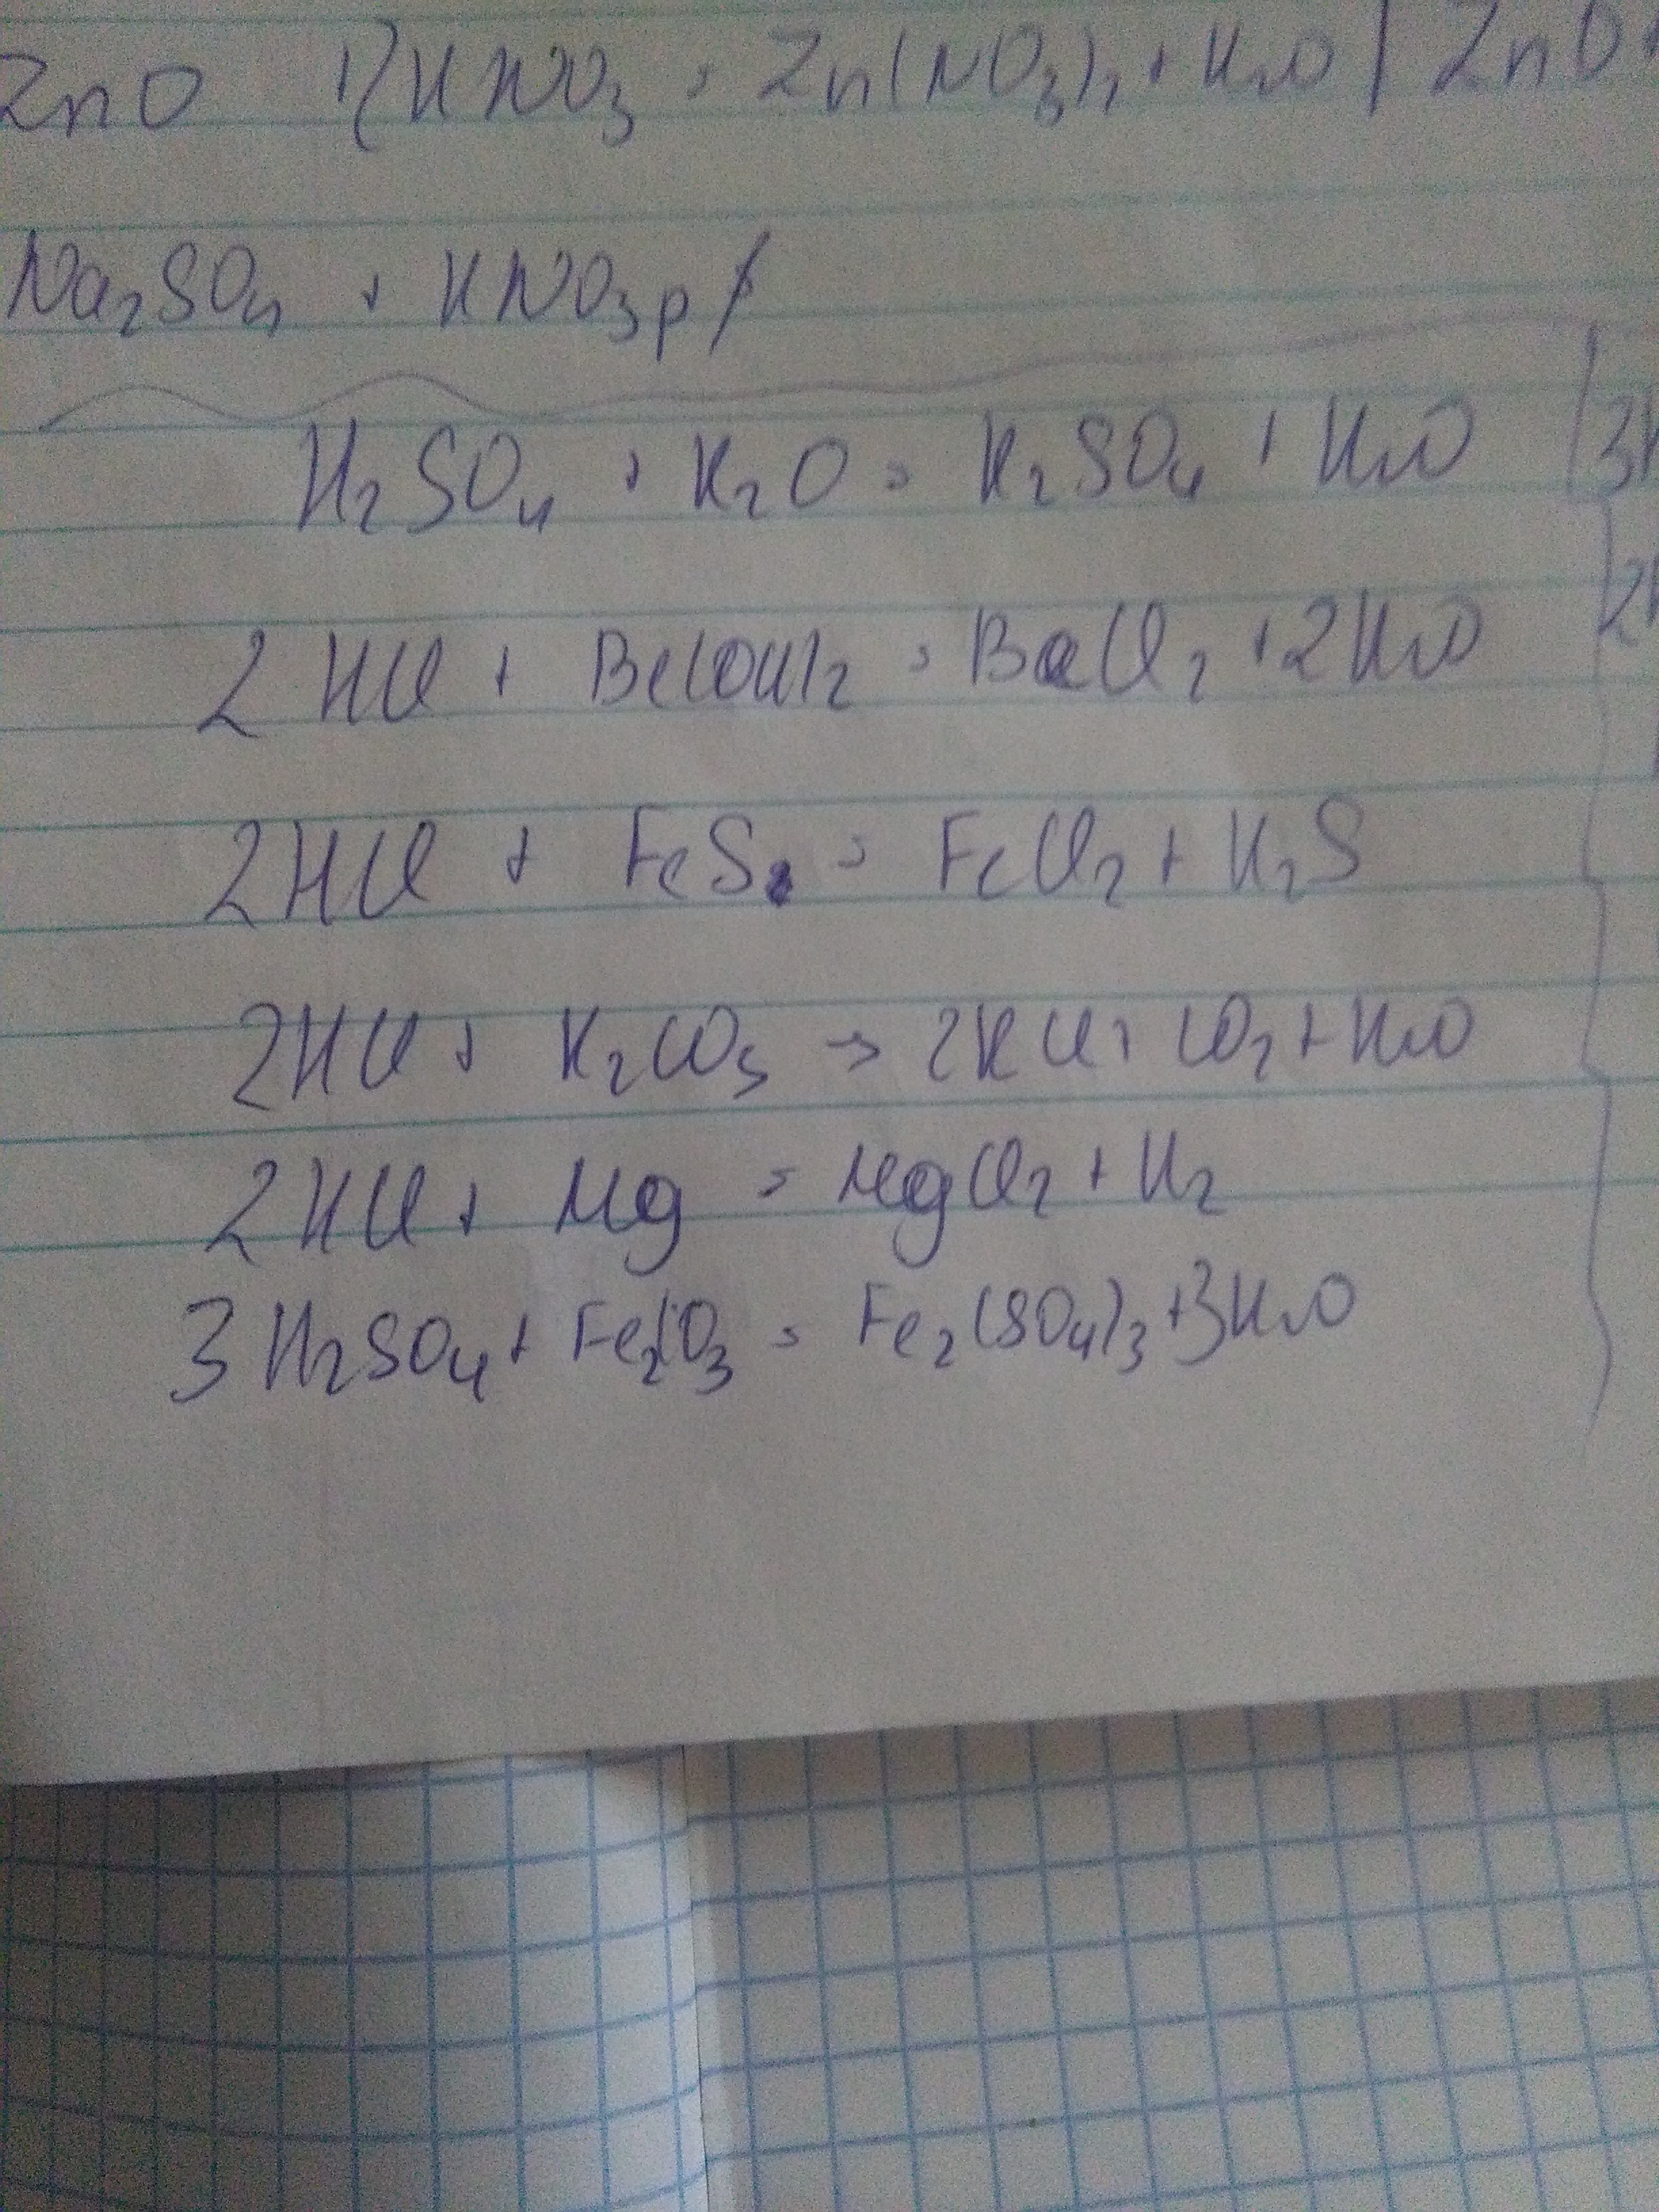 ZnO + 2HNO₃ = Zn(NO₃)₂ + H₂O | ZnO
Na₂SO₄ + HNO₃ p
H₂SO₄ + K₂O = K₂SO₄ + H₂O
2HCl + Be(OH)₂ = BeCl₂ + 2H₂O
2HCl + FeS = FeCl₂ + H₂S
2HCl + K₂CO₃ → 2KCl + CO₂ + H₂O
2HCl + Mg = MgCl₂ + H₂
3H₂SO₄ + Fe₂O₃ = Fe₂(SO₄)₃ + 3H₂O